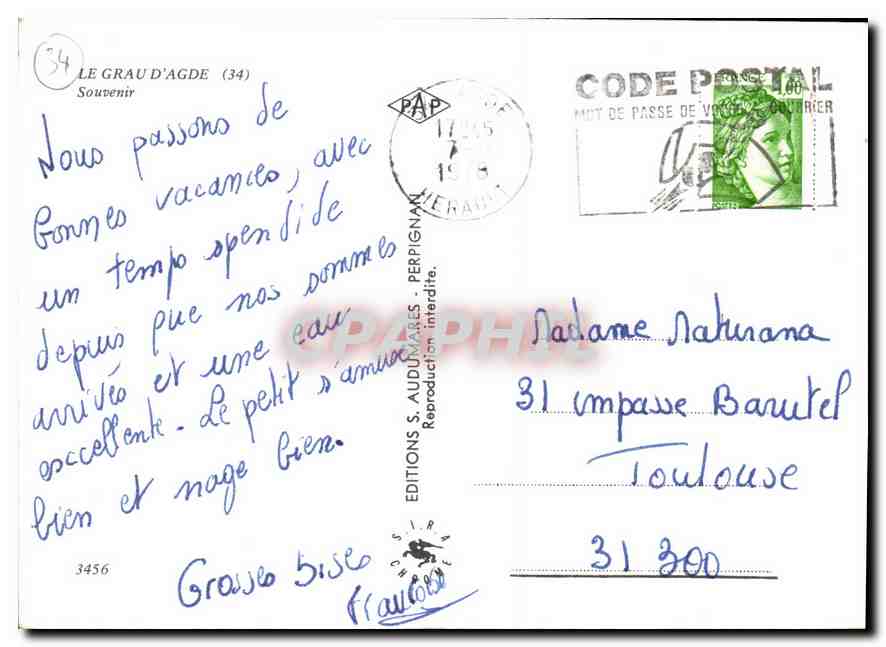 34
LE GRAU D'AGDE (34)
Souvenir
Nous passons de
bonnes vacances, avec
un temps spendide
depuis que nos sommes
arrivés et une eau
exccellente. Le petit s'amuse
bien et nage bien.
Grosses bises
Françoise
3456
PAP
17H45
1978
HERAULT
CODE POSTAL
MOT DE PASSE DE VOTRE COURRIER
FRANCE
1,00
POSTES
EDITIONS S. AUDUMARES - PERPIGNAN
Reproduction interdite.
S.I.R.A
CHROME
CPAPHIL
Madame Maturana
31 impasse Barutel
Toulouse
31 300